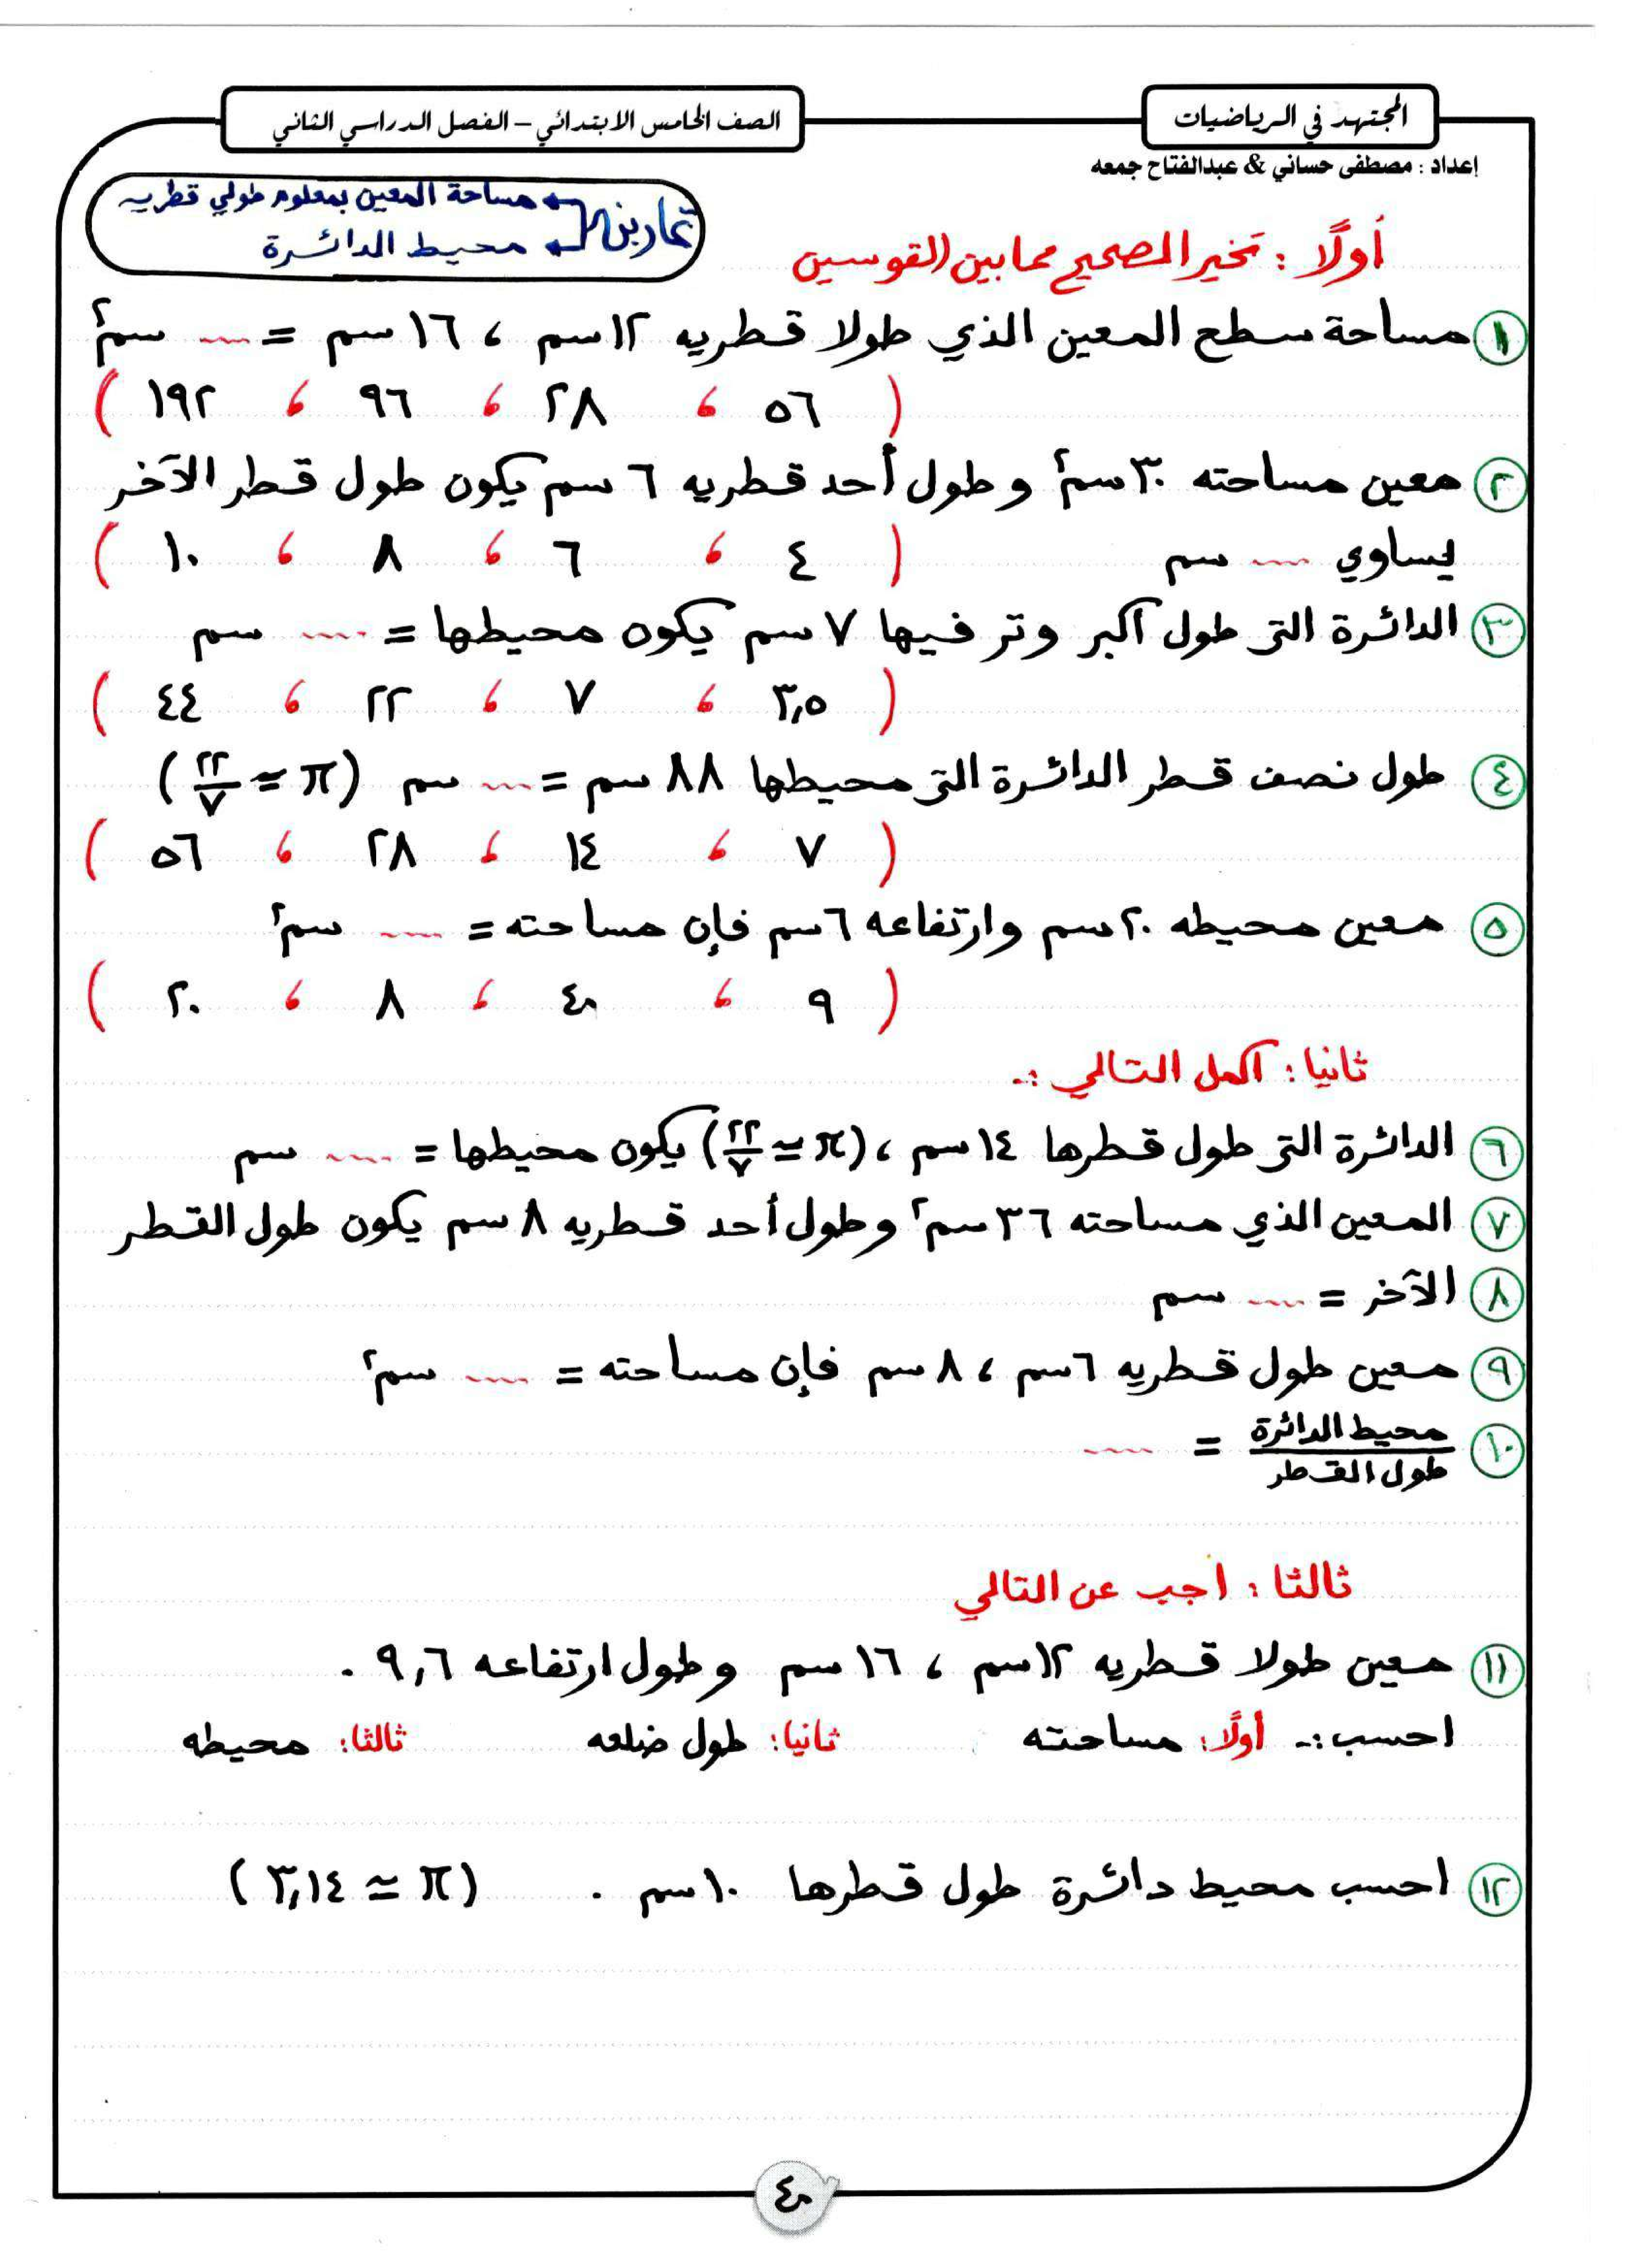 المجتهد في الرياضيات
الصف الخامس الابتدائي – الفصل الدراسي الثاني
إعداد : مصطفى حساني & عبدالفتاح جمعه
تمارين
مساحة المعين بمعلوم طولي قطريه
محيط الدائرة
أولًا : تخير الصحيح مما بين القوسين
١ مساحة سطح المعين الذي طولا قطريه ١٢ سم ، ١٦ سم = .... سم٢
( ٥٦ ، ٢٨ ، ٩٦ ، ١٩٢ )
٢ معين مساحته ٣٠ سم٢ وطول أحد قطريه ٦ سم يكون طول قطر الآخر
يساوي .... سم ( ٤ ، ٦ ، ٨ ، ١٠ )
٣ الدائرة التى طول أكبر وتر فيها ٧ سم يكون محيطها = .... سم
( ٣,٥ ، ٧ ، ٢٢ ، ٤٤ )
٤ طول نصف قطر الدائرة التى محيطها ٨٨ سم = .... سم (π ≃ ٢٢/٧)
( ٧ ، ١٤ ، ٢٨ ، ٥٦ )
٥ معين محيطه ٢٠ سم وارتفاعه ٦ سم فإن مساحته = .... سم٢
( ٩ ، ٤٠ ، ٨ ، ٢٠ )
ثانيا : اكمل التالي :-
٦ الدائرة التى طول قطرها ١٤ سم ، (π ≃ ٢٢/٧) يكون محيطها = .... سم
٧ المعين الذي مساحته ٣٦ سم٢ وطول أحد قطريه ٨ سم يكون طول القطر
٨ الآخر = .... سم
٩ معين طول قطريه ٦ سم ، ٨ سم فإن مساحته = .... سم٢
١٠ محيط الدائرة / طول القطر = ....
ثالثا : اجب عن التالي
١١ معين طولا قطريه ١٢ سم ، ١٦ سم وطول ارتفاعه ٩,٦ .
احسب :- أولًا : مساحته ثانيا : طول ضلعه ثالثا : محيطه
١٢ احسب محيط دائرة طول قطرها ١٠ سم . (π ≃ ٣,١٤)
٤٠